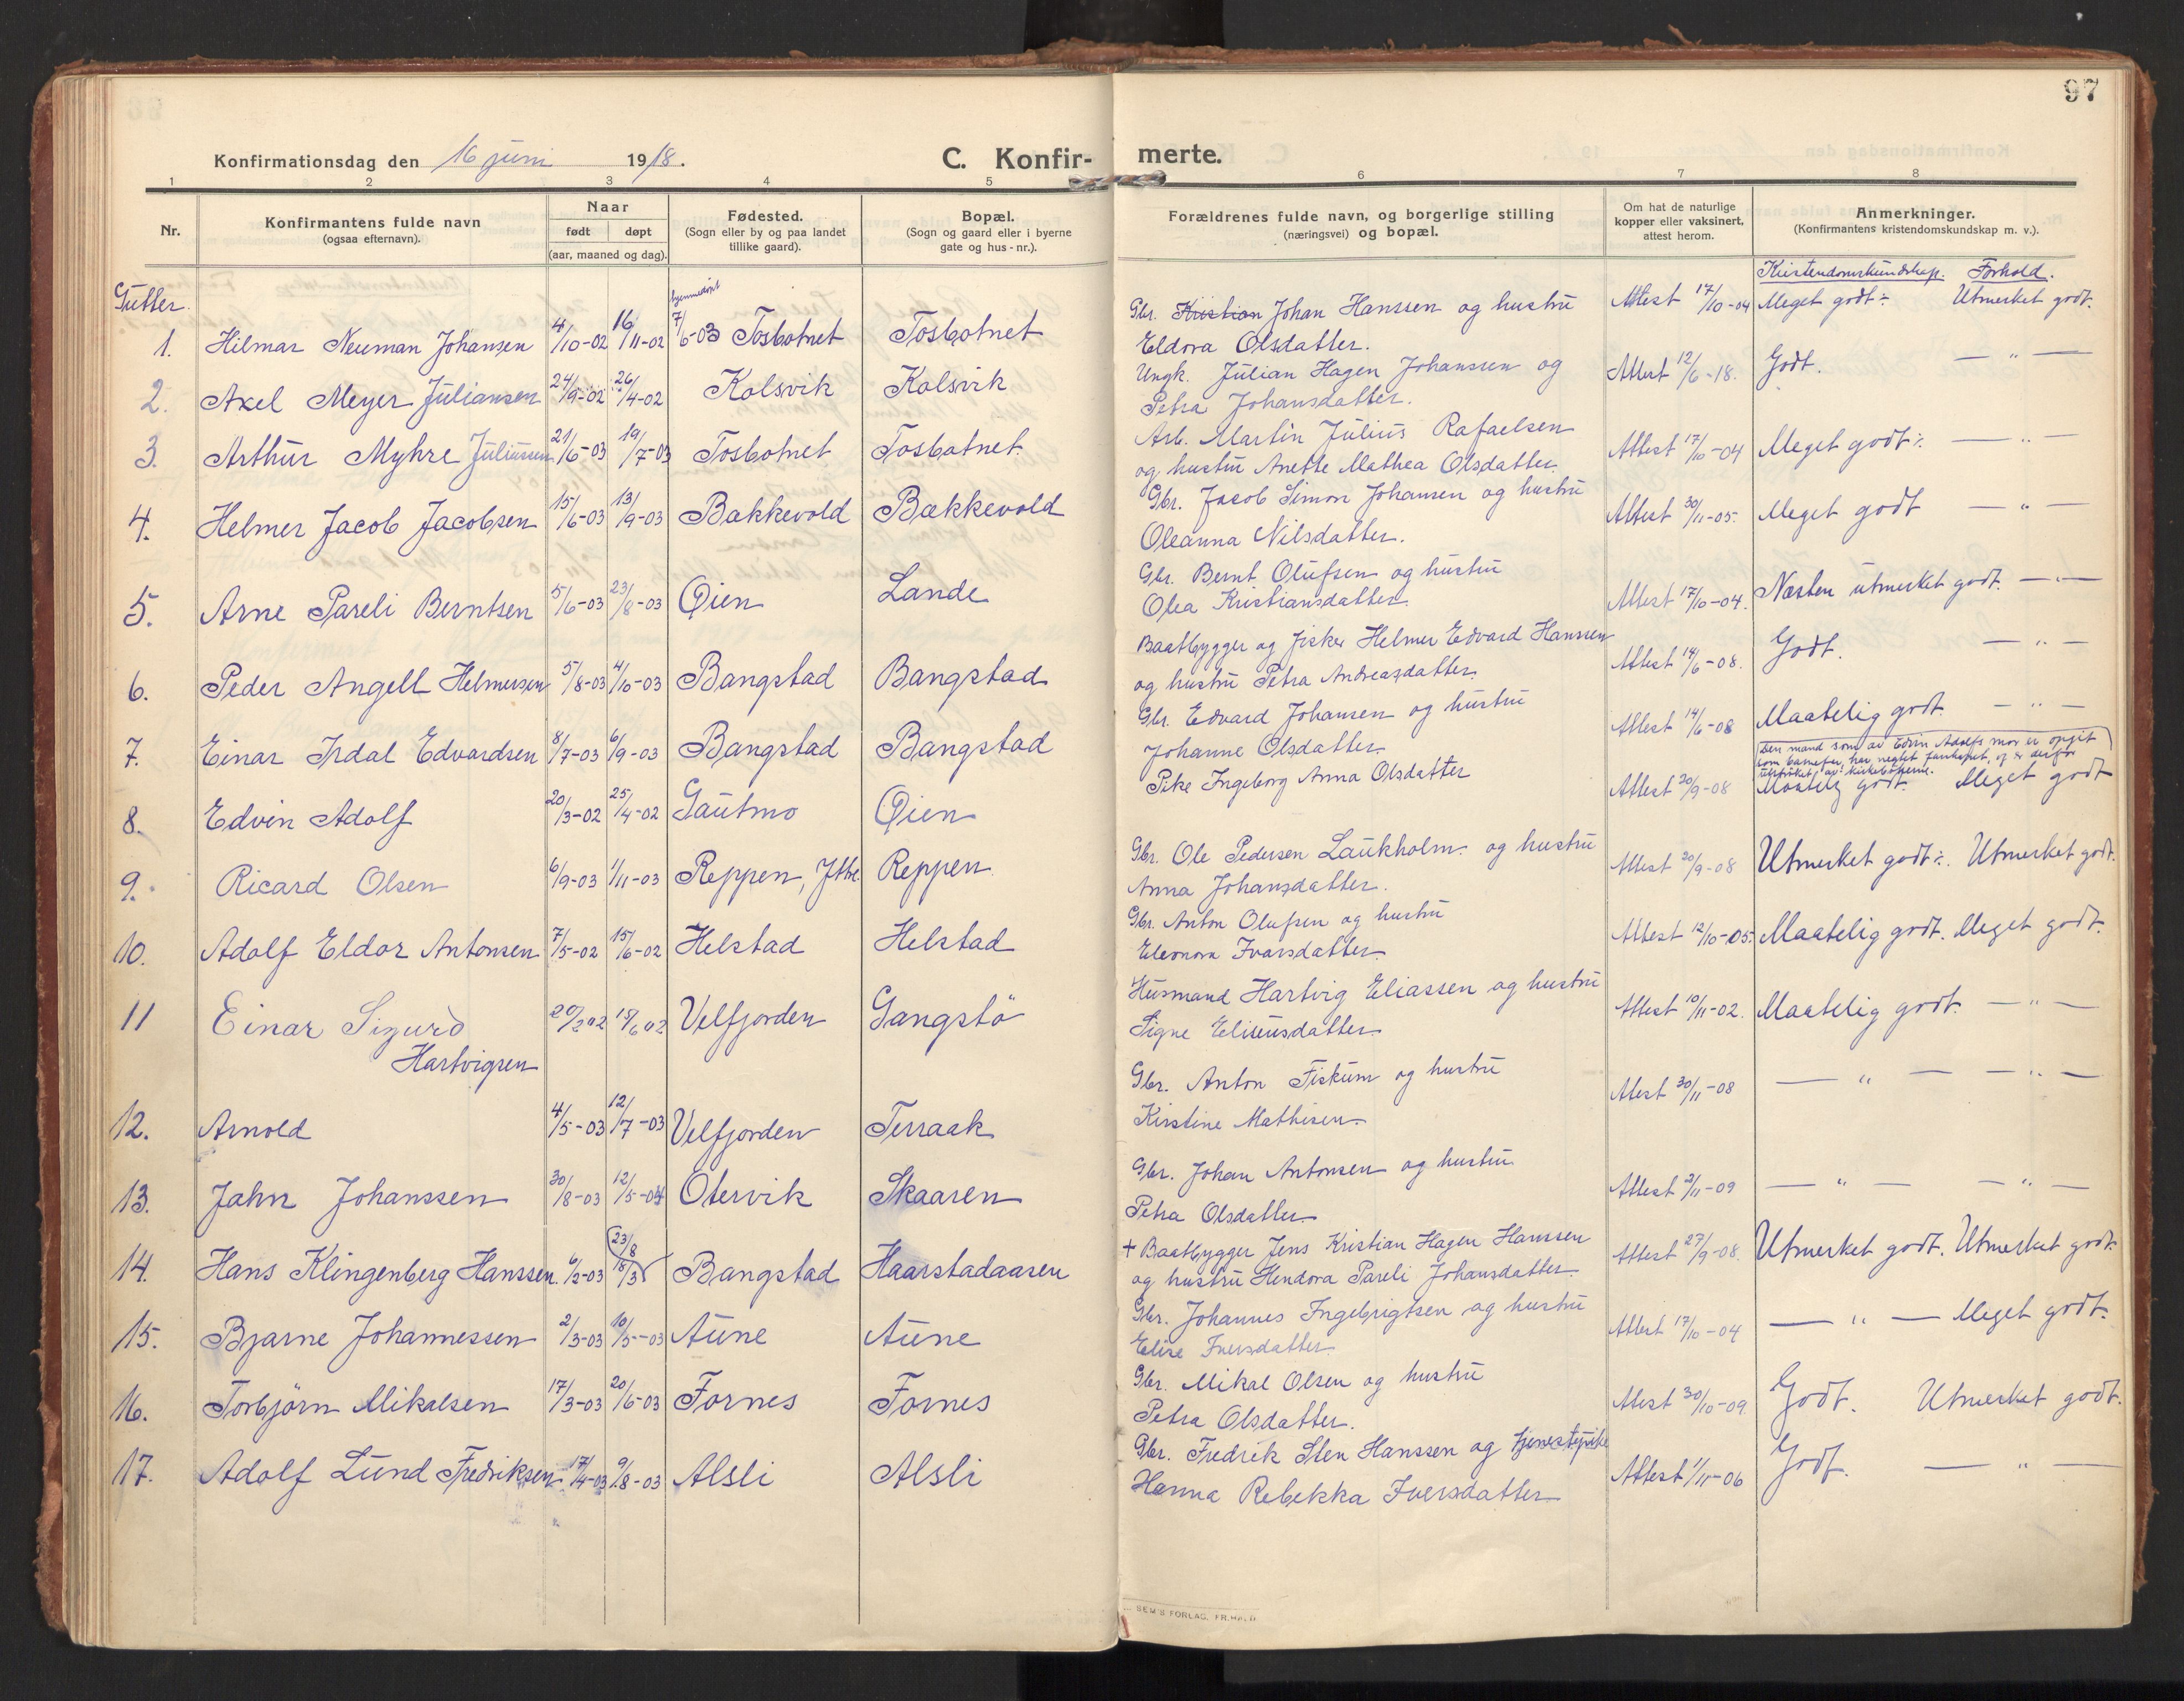 97
Konfirmationsdag den 16 juni 1918.
C. Konfir- merte.
1 2 3 4 5 6 7 8
Nr.
Konfirmantens fulde navn
(ogsaa efternavn).
Naar
født døpt
(aar, maaned og dag).
Fødested.
(Sogn eller by og paa landet
tillike gaard).
Bopæl.
(Sogn og gaard eller i byerne
gate og hus-nr.).
Forældrenes fulde navn, og borgerlige stilling
(næringsvei) og bopæl.
Om hat de naturlige
kopper eller vaksinert,
attest herom.
Anmerkninger.
(Konfirmantens kristendomskundskap m. v.).
Kristendomskundskap. Forhold.
Gutter
hjemmedøpt
1. Hilmar Neuman Johansen 4/10-02 16/11-02 7/6-03 Tosbotnet Tosbotnet Gbr. Kristian Johan Hanssen og hustru Attest 17/10-04 Meget godt÷ Utmerket godt.
Eldora Olsdatter.
2. Axel Meyer Juliansen 24/9-02 26/4-02 Kolsvik Kolsvik Ungk. Julian Hagen Johanssen og Attest 12/6-18. Godt. — " —
Petra Johansdatter.
3. Arthur Myhre Juliussen 21/6-03 19/7-03 Tosbotnet Tosbotnet. Arb. Martin Julius Rafaelsen Attest 17/10-04 Meget godt÷ — " —
og hustru Anette Mathea Olsdatter.
4. Helmer Jacob Jacobsen 15/6-03 13/9-03 Bakkevold Bækkevold Gbr. Jacob Simon Johansen og hustru Attest 30/11-05. Meget godt — " —
Oleanna Nilsdatter.
5. Arne Pareli Berntsen 5/6-03 23/8-03 Øien Lande Gbr. Bernt Olufsen og hustru Attest 17/10-04. Næsten utmerket godt. — " —
Olea Kristiansdatter.
6. Peder Angell Helmersen 5/8-03 4/10-03 Bangstad Bangstad Baatbygger og fisker Helmer Edvard Hanssen Attest 14/6-08. Godt. — " —
og hustru Petra Andreasdatter.
7. Einar Irdal Edvardsen 8/7-03 6/9-03 Bangstad Bangstad Gbr. Edvard Johansen og hustru Attest 14/6-08 Maatelig godt. — " —
Johanne Olsdatter.
Den mand som av Edvin Adolfs mor er opgit
som barnefar, har negtet farskapet, og er derfor
utstrøket av kirkebøkerne.
8. Edvin Adolf 20/3-02 25/4-02 Gautmo Øien Pike Ingeborg Anna Olsdatter Attest 20/9-08 Maatelig godt. Meget godt
9. Ricard Olsen 6/9-03 1/11-03 Reppen, Ittre. Reppen Gbr. Ole Pedersen Laukholm og hustru Attest 20/9-08 Utmerket godt÷. Utmerket godt.
Anna Johansdatter.
10. Adolf Eldor Antonsen 7/5-02 15/6-02 Helstad Helstad Gbr. Anton Olufsen og hustru Attest 12/10-05. Maatelig godt. Meget godt.
Eleonora Ivarsdatter.
11 Einar Sigurd 20/2 02 15/6 02 Velfjorden Gangstö Husmand Hartvig Eliassen og hustru Attest 10/11-02. Maatelig godt. — " —
Hartvigsen Signe Eliseusdatter.
12. Arnold 4/5-03 12/7-03 Velfjorden Terraak Gbr. Anton Fiskum og hustru Atest 30/11-08 — " — — " —
Kirstine Mathisen.
13. Jahn Johanssen 30/8-03 12/5-04 Otervik Skaaren Gbr. Johan Antonsen og hustru Attest 2/11-09 — " — — " —
Petra Olsdatter.
14. Hans Klingenberg Hanssen. 6/2-03 23/8 15/3 Bangstad Haarstadaasen + Baatbygger Jens Kristian Hagen Hanssen Attest 27/9-08. Utmerket godt. Utmerket godt.
og hustru Hendora Pareli Johansdatter.
15. Bjarne Johannessen 2/3-03 10/5-03 Aune Aune Gbr. Johannes Ingebrigtsen og hustru Attest 17/10-04 — " — Meget godt.
Elise Iversdatter.
16. Torbjørn Mikalsen 17/3-03 20/6-03 Fornes Fornes Gbr. Mikal Olsen og hustru Atest 30/10-09. Godt. Utmerket godt.
Petra Olsdatter.
17. Adolf Lund Fredriksen 17/4-03 9/8-03 Alsli Alsli Gbr. Fredrik Sten Hanssen og tjenestepike Attest 1/11-06 Godt. — " —
Hanna Rebekka Iversdatter
SEM'S FORLAG, FR.HALD